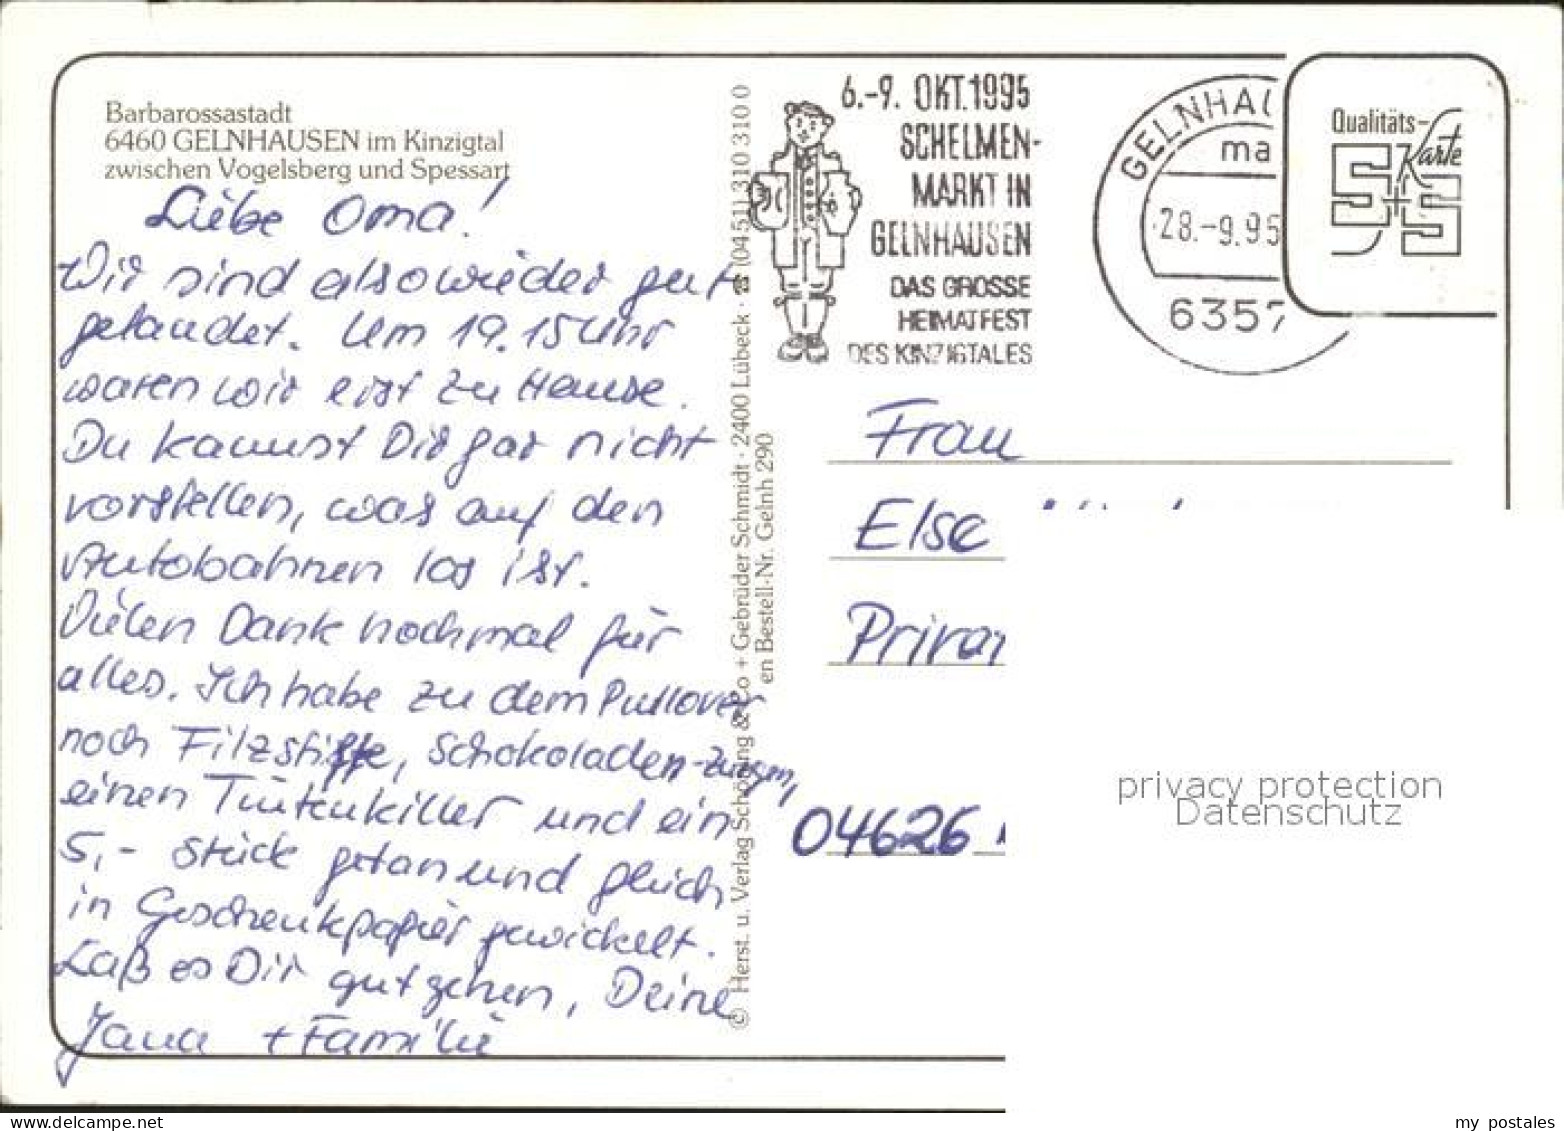 Barbarossastadt
6460 GELNHAUSEN im Kinzigtal
zwischen Vogelsberg und Spessart
Liebe Oma!
Wir sind also wieder gut
gelandet. Um 19.15 Uhr
waren wir erst zu Hause.
Du kannst Dir gar nicht
vorstellen, was auf den
Autobahnen los ist.
Vielen Dank nochmal für
alles. Ich habe zu dem Pullover
noch Filzstifte, Schokoladen-zungen,
einen Tintenkiller und ein
5,- Stück getan und gleich
in Geschenkpapier gewickelt.
Laß es Dir gut gehen, Deine
Jana + Familie
© Herst. u. Verlag Schöning & Co + Gebrüder Schmidt · 2400 Lübeck · ☎ (0451) 310 310 0
en Bestell-Nr. Gelnh 290
6.-9. OKT.1995
SCHELMEN-
MARKT IN
GELNHAUSEN
DAS GROSSE
HEIMATFEST
DES KINZIGTALES
GELNHAU
ma
28.-9.95
6357
Qualitäts-
Karte
S+S
Frau
Else
Privat
04626
privacy protection
Datenschutz
my postales